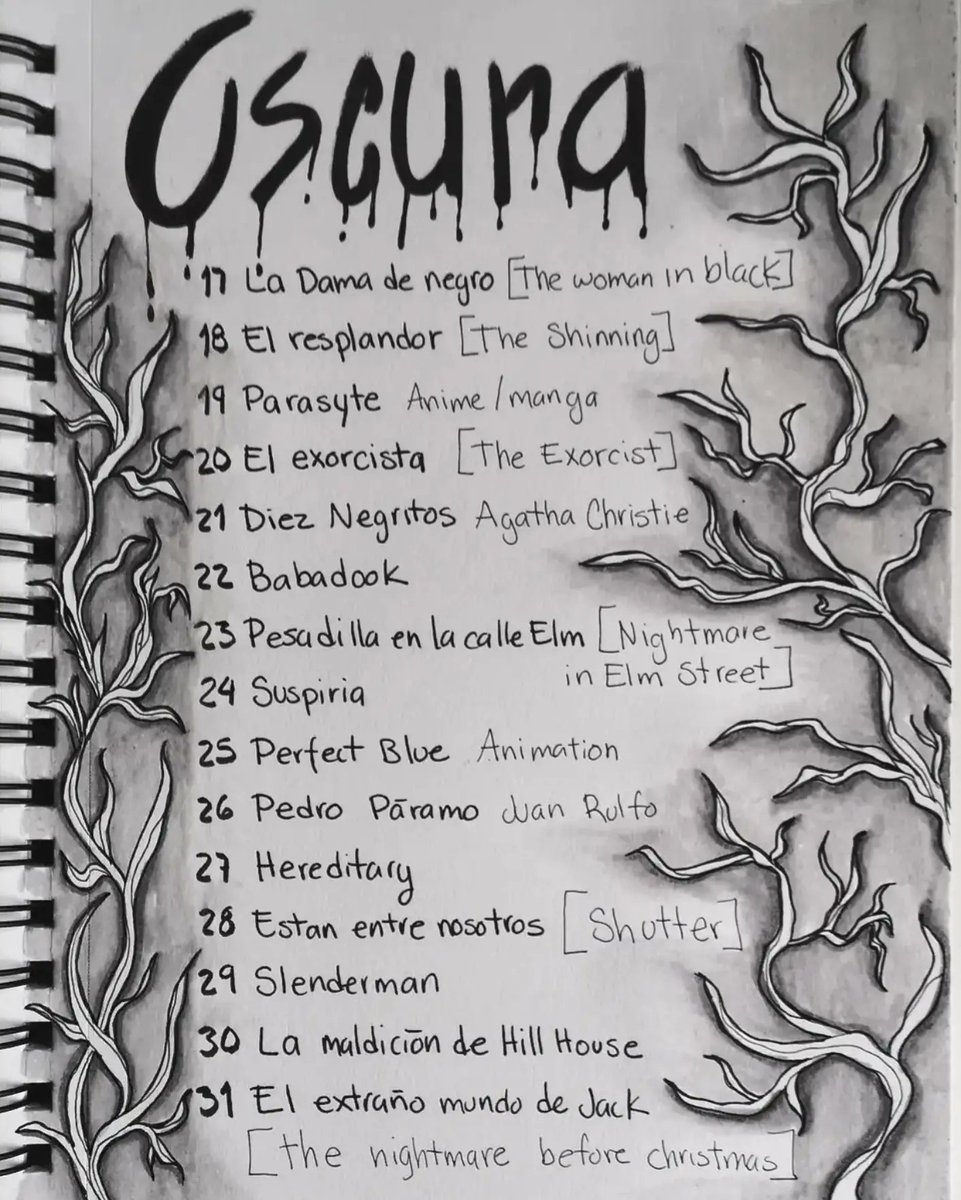 Oscura
17 La Dama de negro [The woman in black]
18 El resplandor [The Shinning]
19 Parasyte Anime/manga
20 El exorcista [The Exorcist]
21 Diez Negritos Agatha Christie
22 Babadook
23 Pesadilla en la calle Elm [Nightmare
in Elm Street]
24 Suspiria
25 Perfect Blue Animation
26 Pedro Páramo Juan Rulfo
27 Hereditary
28 Estan entre nosotros [Shutter]
29 Slenderman
30 La maldición de Hill House
31 El extraño mundo de Jack
[the nightmare before christmas]